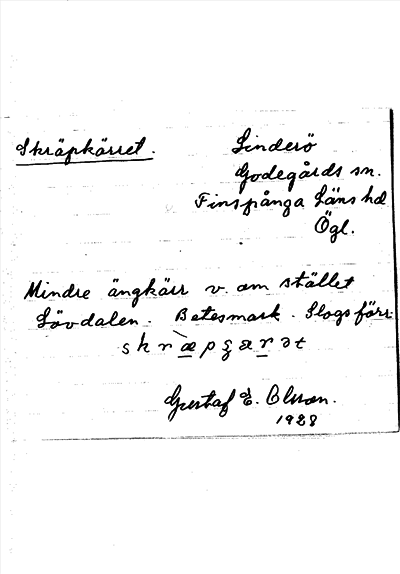 Skräpkärret.
Linderö
Godegårds sn.
Finspånga Läns hd
Ögl.
Mindre ängkärr v. om stället
Lövdalen. Betesmark. Slogs förr.
Gustaf E. Olsson.
1928